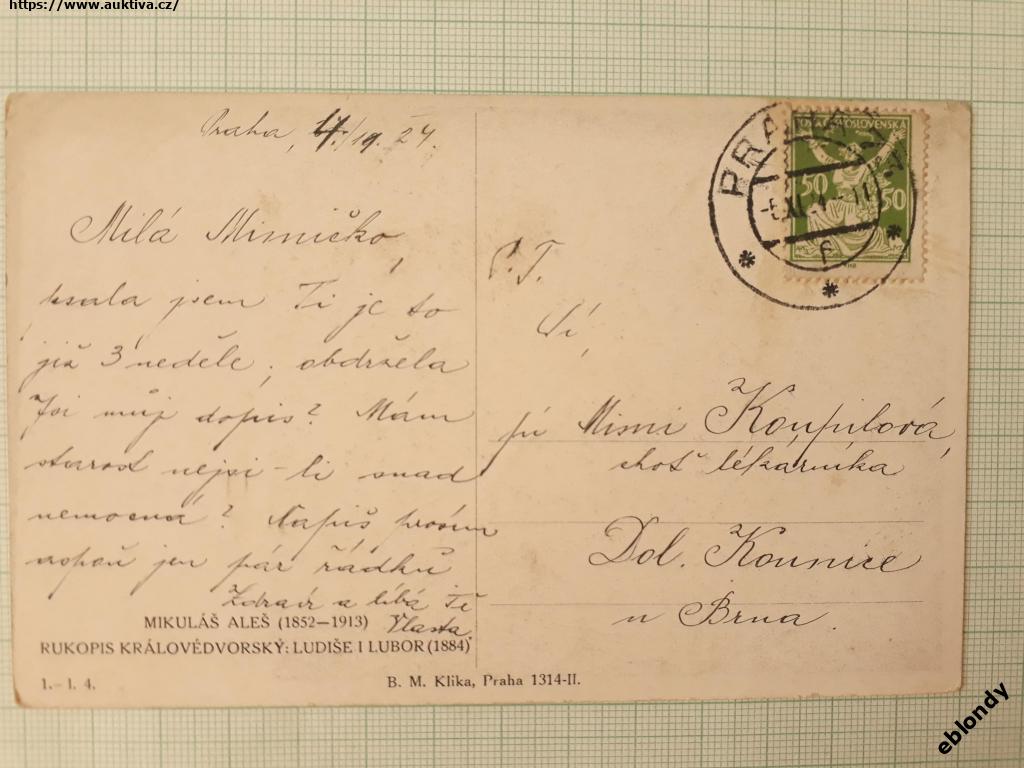 https://www.auktiva.cz/
Praha, 4./19. 24.
Milá Mimičko,
psala jsem Ti je to
již 3 neděle, obdržela
Jsi můj dopis? Mám
starost nejsi-li snad
nemocná? Napiš prosím
aspoň jen pár řádků
Zdraví a líbá Tě
Vlasta
MIKULÁŠ ALEŠ (1852—1913)
RUKOPIS KRÁLOVÉDVORSKÝ: LUDIŠE I LUBOR (1884)
1.-I. 4.
B. M. Klika, Praha 1314-II.
PRAHA
-5.XI.
ČESKOSLOVENSKÁ
50 50
P. T.
pí Mimi Koupilová,
choť lékárníka
Dol. Kounice
u Brna.
eblondy